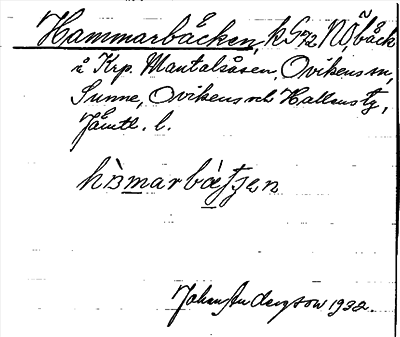 Hammarbäcken, kG72 NÖ, bäck
å Krp. Mantalsåsen, Ovikens sn,
Sunne, Ovikens och Hallens tg,
Jämtl. l.
hòmarbátjen
Johan Anderson 1932.